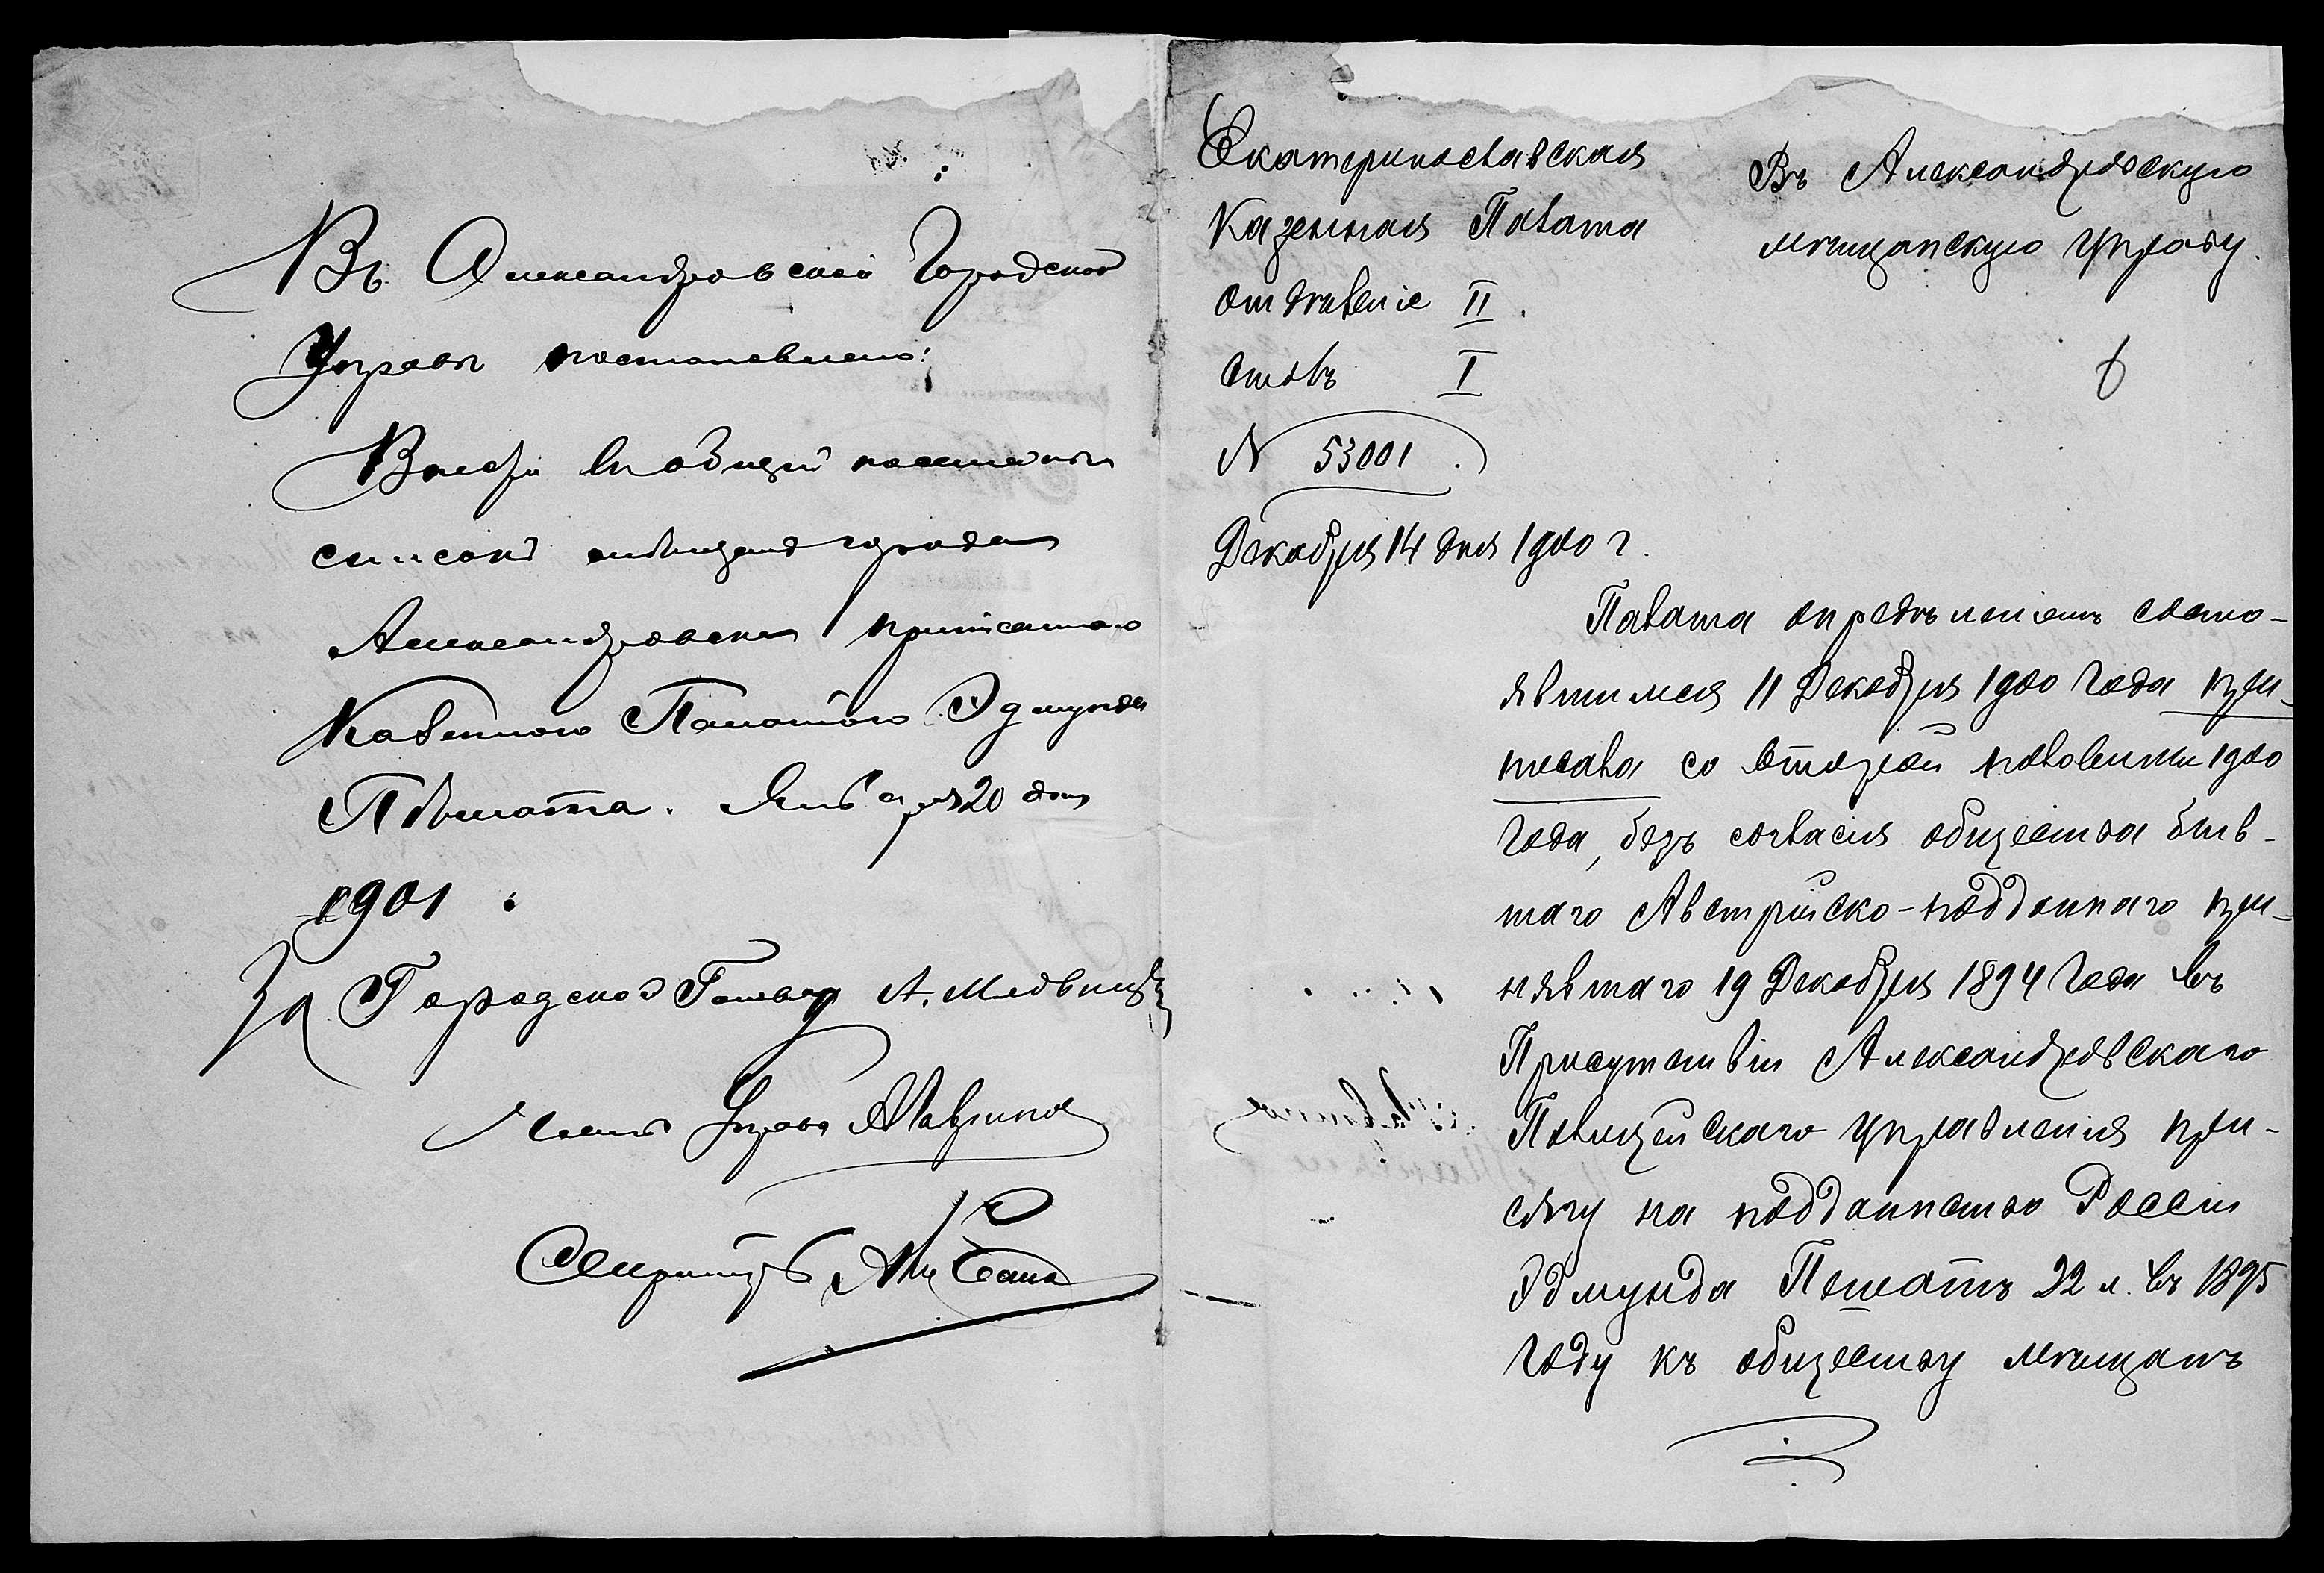 Въ Александровской Городской
Управѣ постановлено:
Внести въ общій посемейный
списокъ мѣщанъ города
Александровска приписаннаго
Казенною Палатою Эдмунда
Января 20 дня
1901
За Городской Голова А.
Членъ Управы
Секретарь
Екатеринославская
Казенная Палата
Отдѣленіе II.
Столъ I
N 53001.
Декабря 14 дня 1900 г.
Въ Александровскую
мѣщанскую Управу.
Палата опредѣленіемъ состо-
явшимся 11 Декабря 1900 года при-
писала со второй половины 1900
года, безъ согласія общества быв-
шаго Австрійско-подданнаго при-
нявшаго 19 Декабря 1894 года въ
Присутствіи Александровскаго
Полицейскаго Управленія при-
сягу на подданство Россіи
Эдмунда Пешатъ 22 л. въ 1895
году къ обществу мѣщанъ